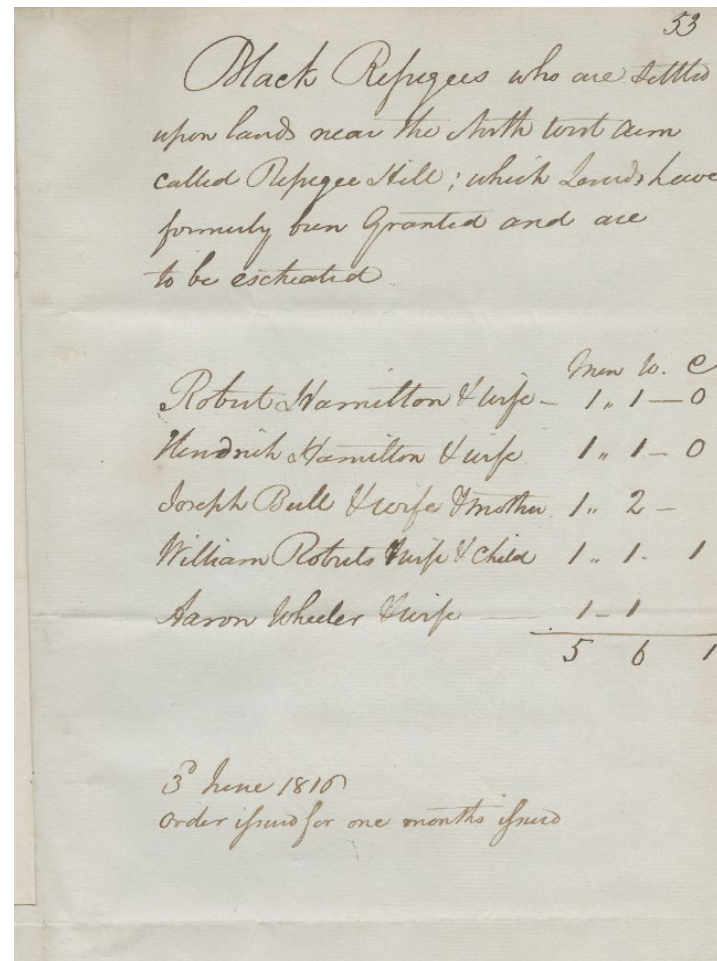 53
Black Refugees who are Settled
upon lands near the North West Arm
called Refugee Hill; which Lands have
formerly been Granted and are
to be escheated.
Men W. C
Robert Hamilton & wife – 1 „ 1 – 0
Hendrick Hamilton & wife 1 „ 1 – 0
Joseph Bull & wife & mother 1 „ 2 –
William Roberts & wife & Child 1 „ 1 - 1
Aaron Wheeler & wife — 1 – 1
5 6 1
3d June 1816
order issued for one months issued